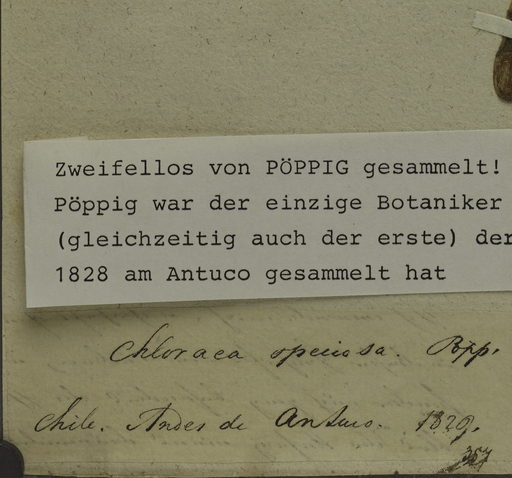 Zweifellos von PÖPPIG gesammelt!
Pöppig war der einzige Botaniker
(gleichzeitig auch der erste) der
1828 am Antuco gesammelt hat
Chloraea speciosa. Pöpp.
Chile. Andes de Antuco. 1829.